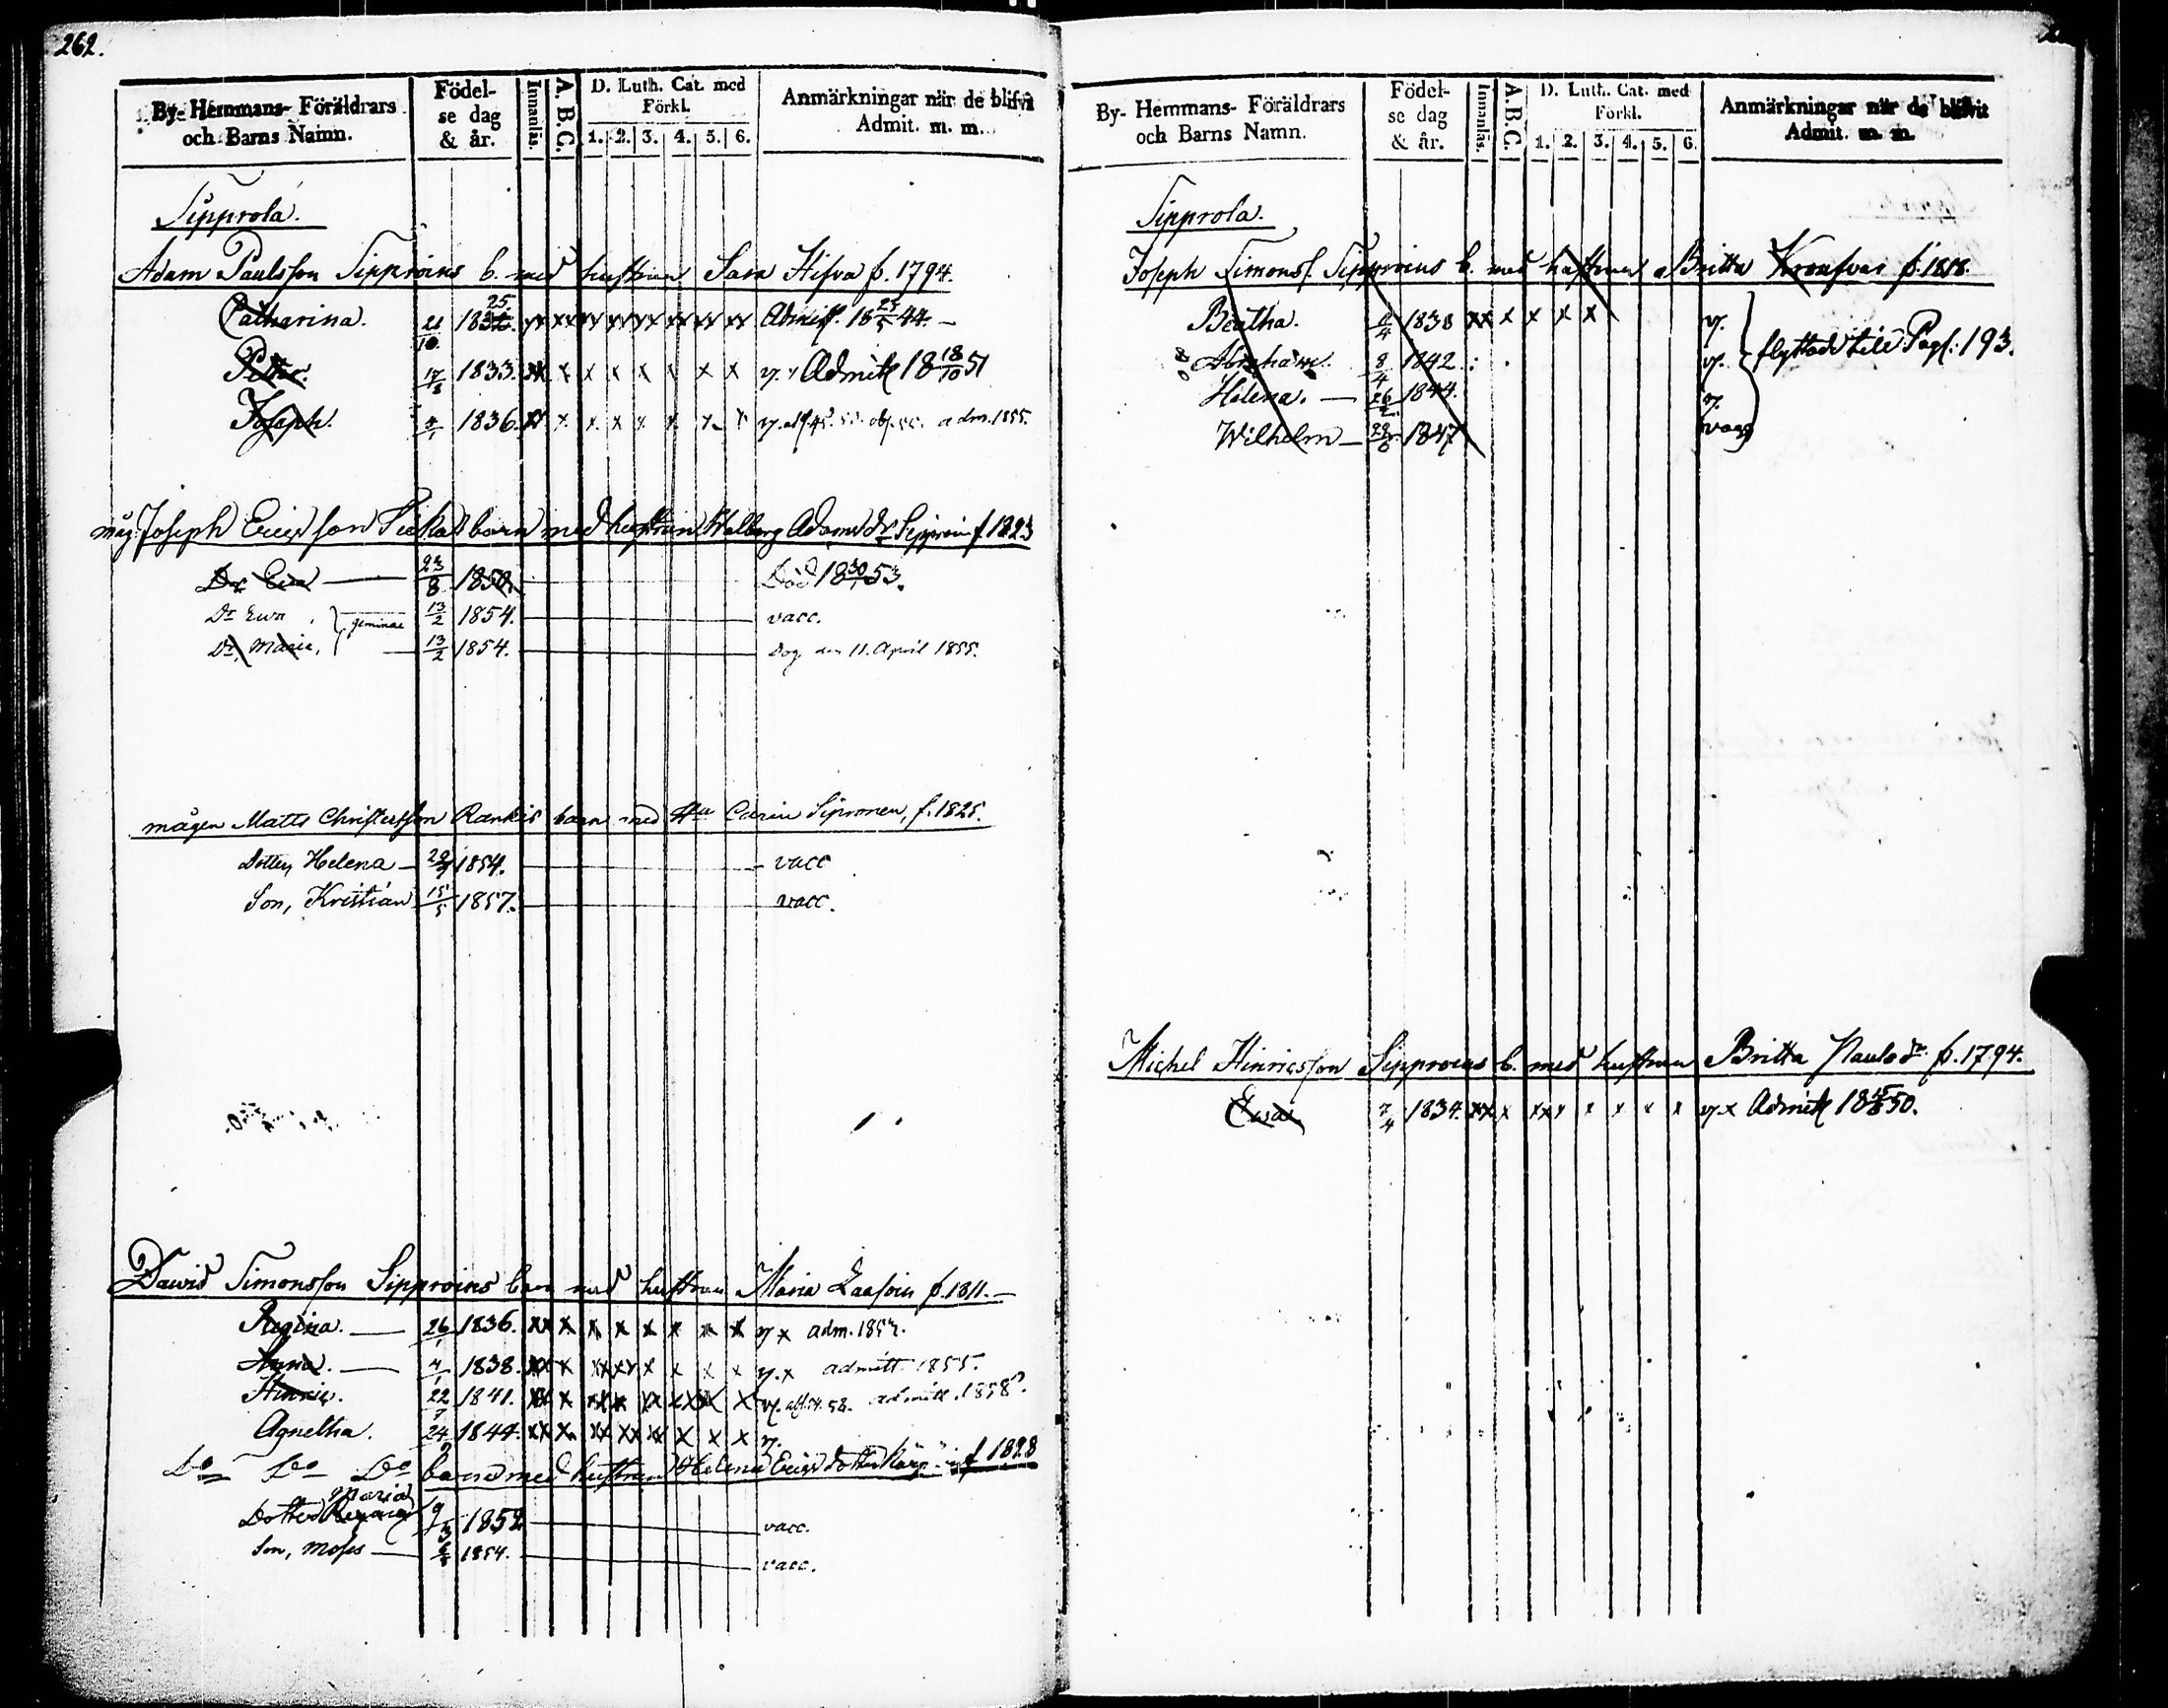 262.
By- Hemmans- Föräldrars och Barns Namn.
Födel-se dag & år.
Innanläs.
A.B.C.
D. Luth. Cat. med Förkl.
1. 2. 3. 4. 5. 6.
Anmärkningar när de blifvit Admit. m. m.
Sipprola.
Adam Paulsson Sipproins b. med hustrun Sara Hifva f. 1794.
Catharina. 21/10. 18 25 xx xx xx xx xx xx xx xx Admiss. 18 25/5 44. —
Petter. 17/8 1833. xx x x x x x x v. x Admitt 18 18/10 51
Joseph. 1836. xx x x x x x x x adm. 1855.
måg. Joseph Ericsson barn med hustrun Walborg Adamsdr Sipproin f 1823
Dr Eva — 23/8 1850. — Död 18 30/ 53.
Dr Ewa, geminae 13/2 1854. — vacc.
Dr, Maria, — 13/2 1854. — Dog den 11. April 1855.
mågen Matts Christersson Rankis barn med Hu Carin Sipronen, f. 1825.
Dotter, Helena — 1854. — vacc
Son, Kristian 15/5 1857. — vacc.
David Simonsson Sipproins barn med hustrun Maria f. 1811. —
Regina. — 26/1 1836. xx x x x x x x x v x adm. 185
Anna. — 4/1 1838. xx x xx xx x x x x v. x admitt 1855.
Hinric. 22 1841. xx x admitt. 1858.
Agnetha. 24 1844. xx x xx xx xx x x x v.
Do Do Do barn med hustrun Helena Ericsdotter f 1828
Maria
Dotter 9/3 1852 — vacc.
Son, Moses — 1854. — vacc.
By- Hemmans- Föräldrars och Barns Namn.
Födel-se dag & år.
Innanläs.
A.B.C.
D. Luth. Cat. med Förkl.
1. 2. 3. 4. 5. 6.
Anmärkningar när de blifvit Admit. m. m.
Sipprola.
Joseph Simonss. Sipproins b. med hustrun Britta f. 1818.
Beatha. 1838 xx x x x x v.
Abraham. 8/4 1842. v. flyttade till Pag: 193.
Helena. — 26 1844. v.
Wilhelm — 1847 vacc
Michel Hinricsson Sipproins b. med hustrun Britta Paulsdr f. 1794.
Ewa. 7/4 1834. xx x xxx x x x x v x Admitt 18 50.